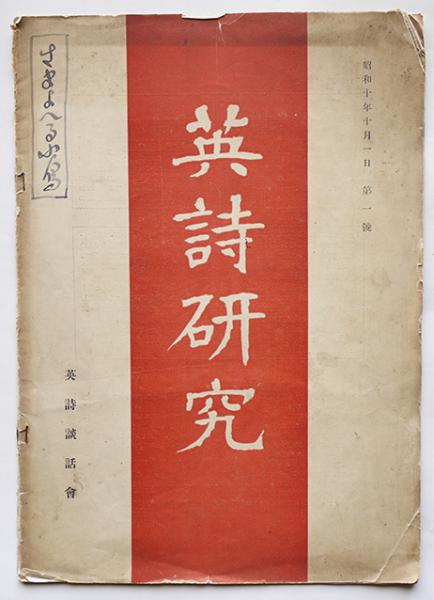 昭和十年十月一日 第一號
英詩研究
さまよへる小鳥
英詩談話會